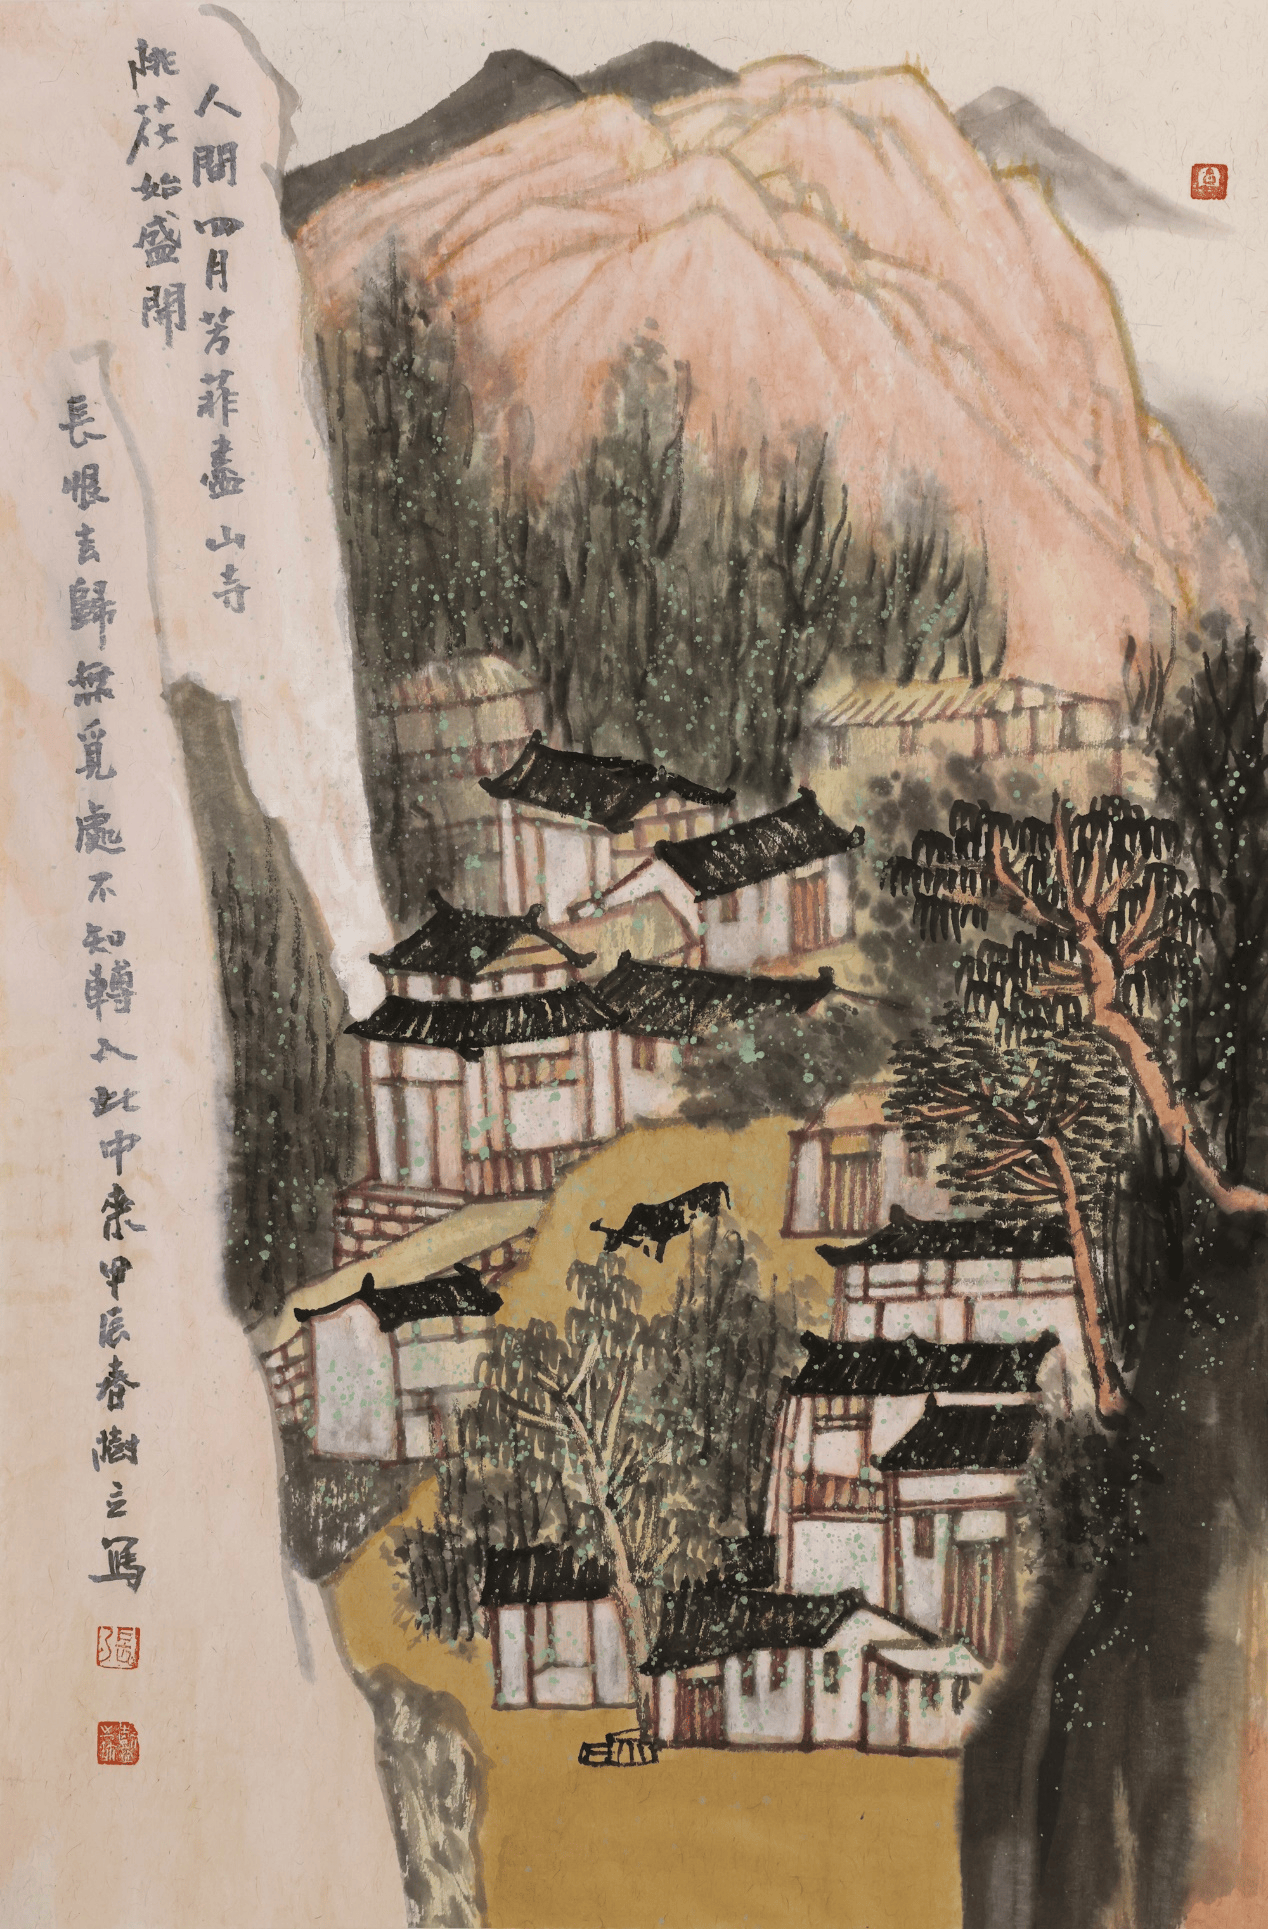 人間四月芳菲盡山寺
桃花始盛開
長恨去歸無覓處不知轉入此中來甲辰春樹立寫
張